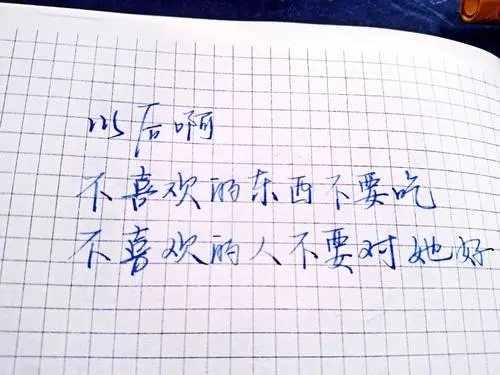 以后啊
不喜欢的东西不要吃
不喜欢的人不要对她好